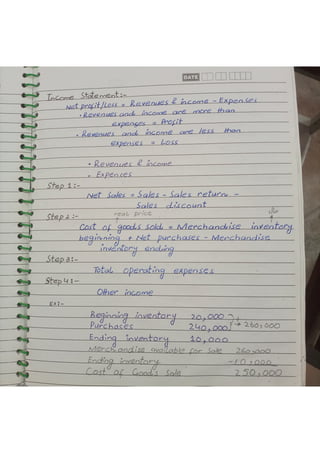 DATE
Income Statement:-
Net profit/Loss = Revenues & income - Expenses
• Revenues and income are more than
expenses = Profit
• Revenues and income are less than
expenses = Loss
• Revenues & income
• Expences
Step 1:-
Net Sales = Sales - Sales return -
Sales discount
Step 2:-
real price
Cost of goods sold = Merchandise inventory
beginning + Net purchases - Merchandise
inventory ending
Step 3:-
Total operating expenses
Step 4:-
Other income
Ex:-
Beginning inventory 20,000
Purchases 240,000 → 260,000
Ending inventory 10,000
Merchandise available for sale 260,000
Ending inventory -10,000
Cost of Goods Sale 250,000